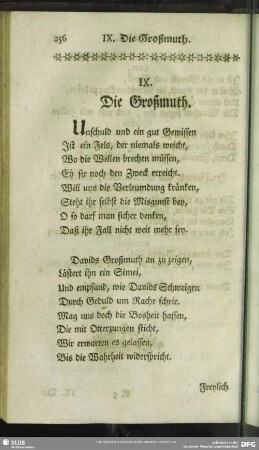 256 IX. Die Großmuth.
IX.
Die Großmuth.
Unschuld und ein gut Gewissen
Ist ein Fels, der niemals weicht,
Wo die Wellen brechen müssen,
Eh sie noch den Zweck erreicht.
Will uns die Verleumdung kränken,
Steht ihr selbst die Misgunst bey,
O so darf man sicher denken,
Daß ihr Fall nicht weit mehr sey.
Davids Großmuth an zu zeigen,
Lästert ihn ein Simei,
Und empfand, wie Davids Schweigen
Durch Geduld um Rache schrie.
Mag uns doch die Bosheit hassen,
Die mit Otterzungen sticht,
Wir erwarten es gelassen,
Bis die Wahrheit widerspricht.
Freylich
SLUB
DFG